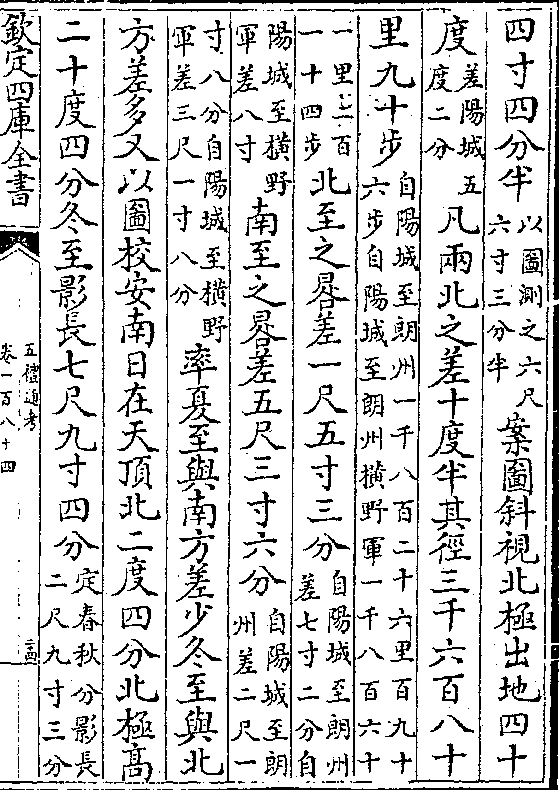 四寸四分半以圖測之六尺六寸三分半案圖斜視北極出地四十
度差陽城五度二分凡兩北之差十度半其徑三千六百八十
里九十步自陽城至朗州一千八百二十六里百九十六步自陽城至朗州横野軍一千八百六十
一里二百一十四步北至之晷差一尺五寸三分自陽城至朗州差七寸二分自
陽城至横野軍差八寸南至之晷差五尺三寸六分自陽城至朗州差二尺一
寸八分自陽城至横野軍差三尺一寸八分率夏至與南方差少冬至與北
方差多又以圖校安南日在天頂北二度四分北極髙
二十度四分冬至影長七尺九寸四分定春秋分影長二尺九寸三分
欽定四庫全書
五禮通考
卷一百八十四